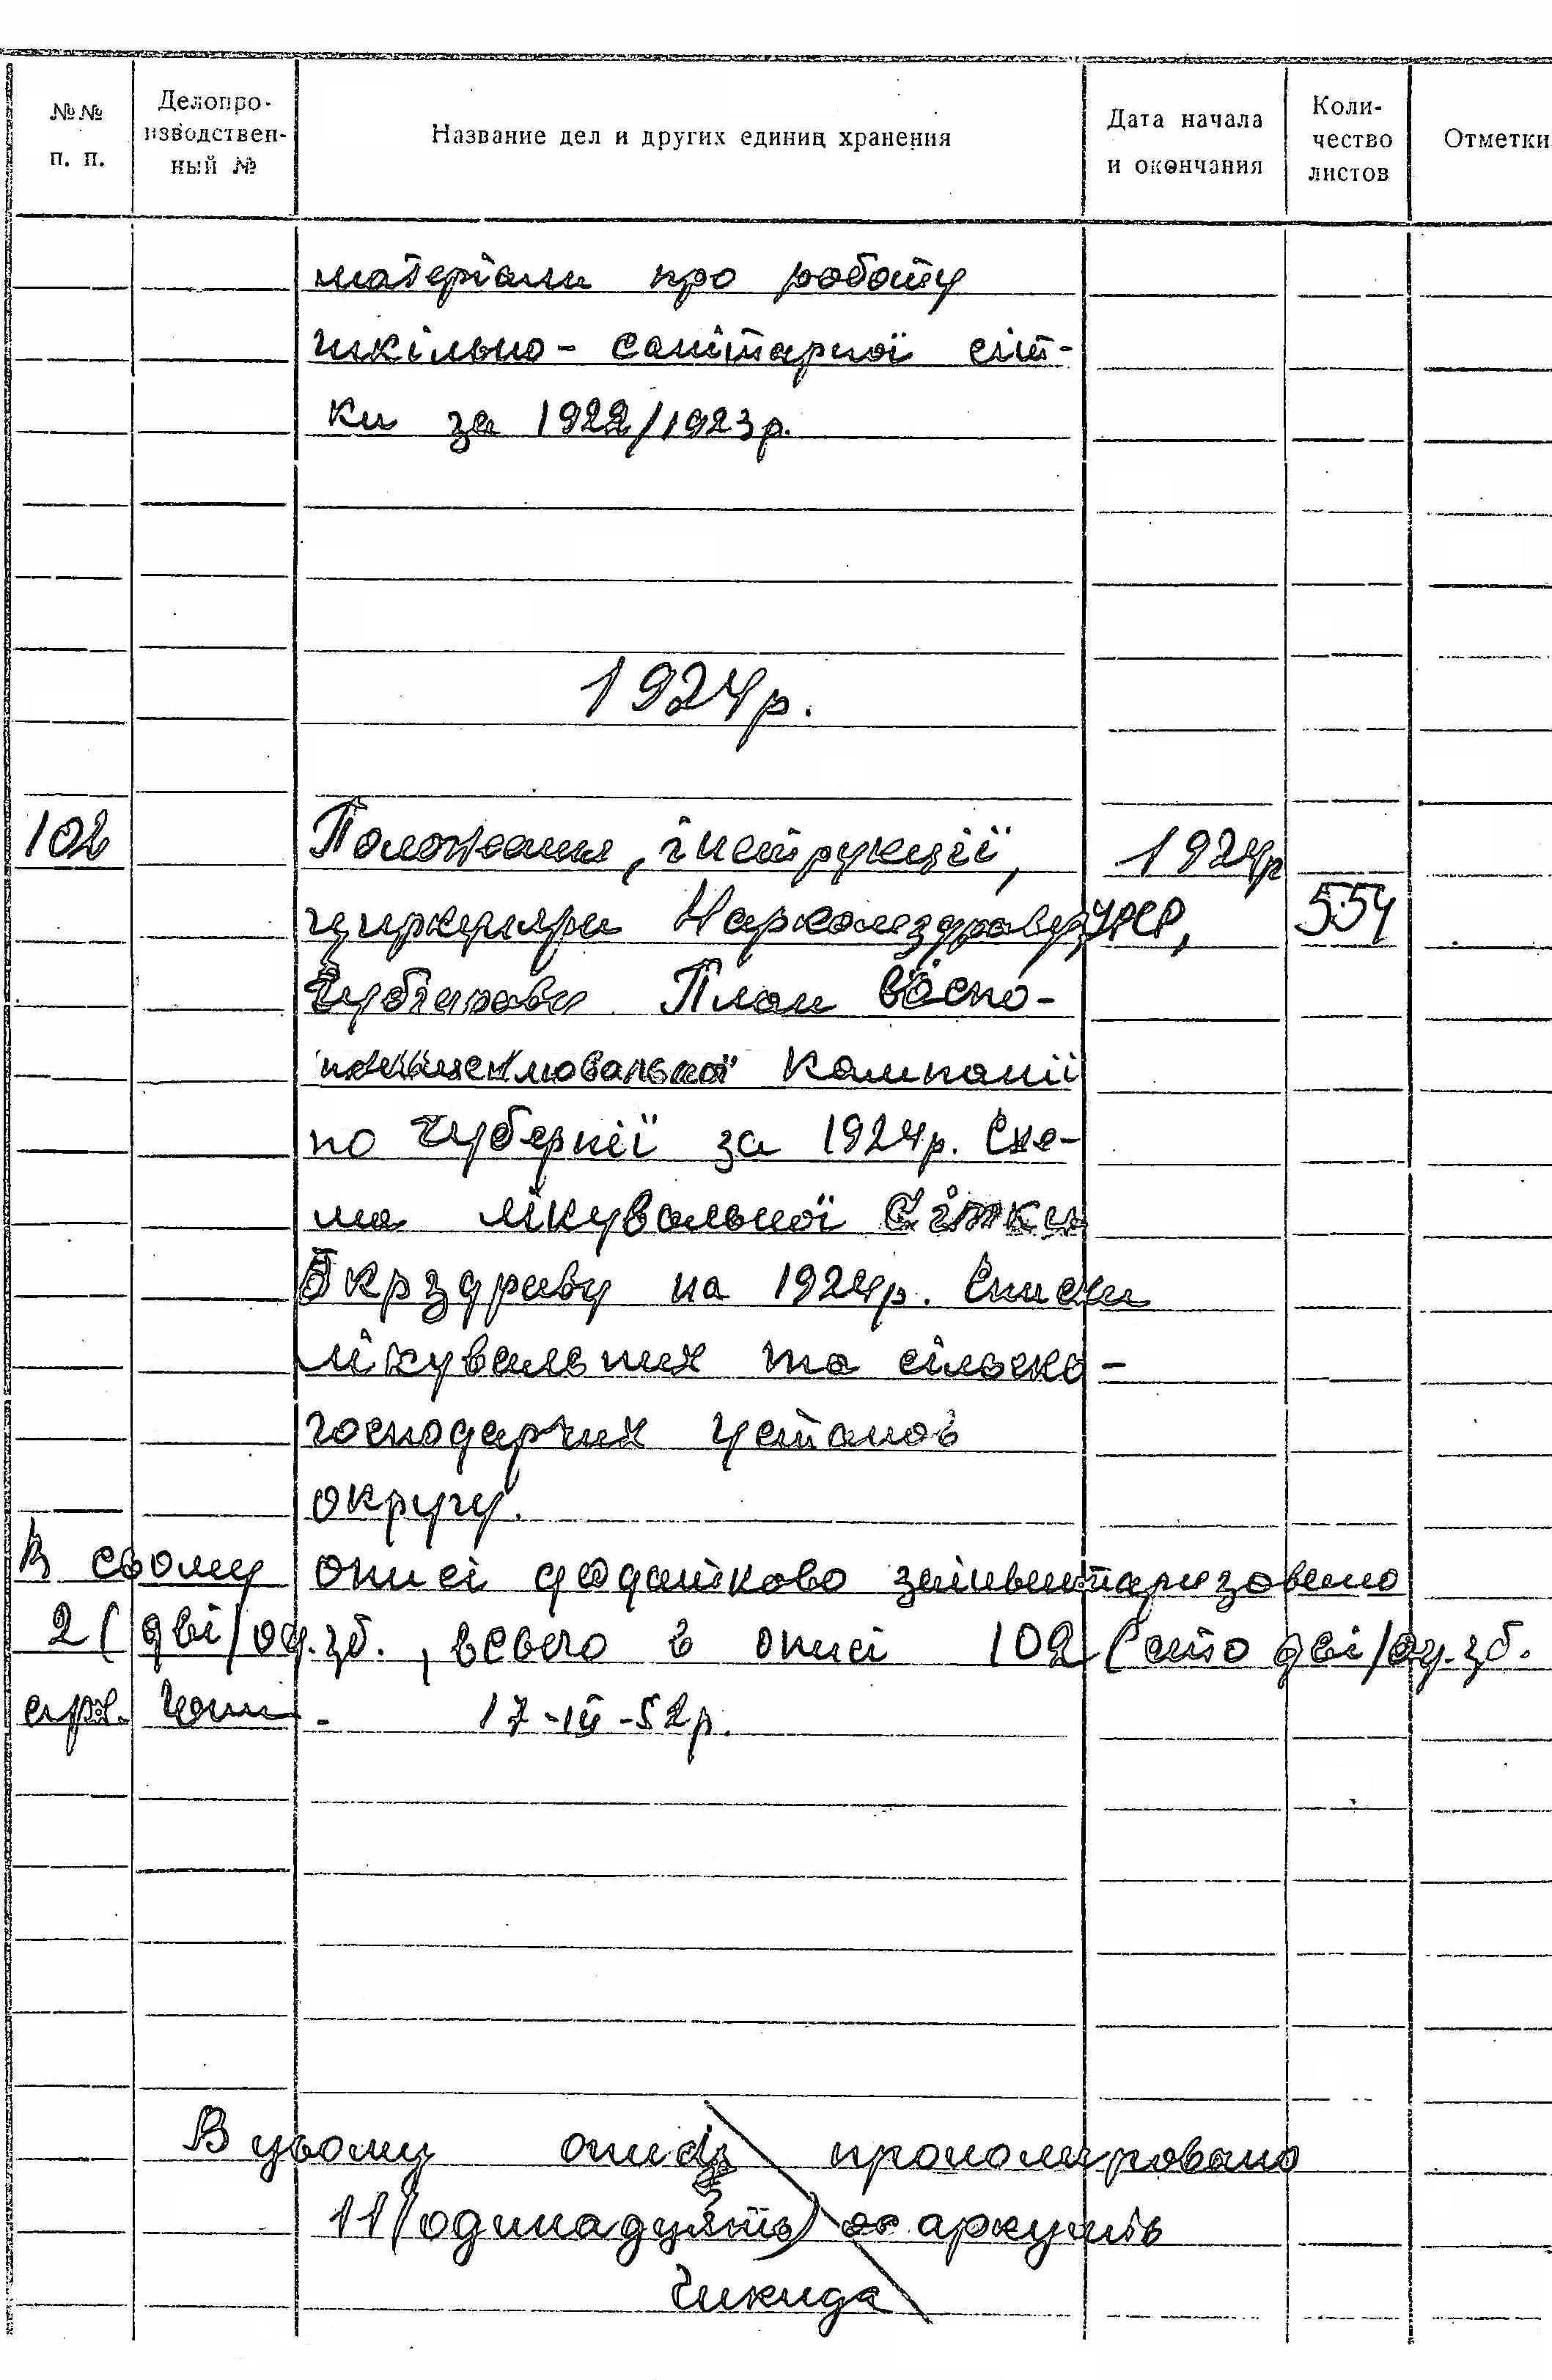 №№ п. п.
Делопро-
изводствен-
ный №
Название дел и других единиц хранения
Дата начала
и окончания
Коли-
чество
листов
Отметки
матеріали про роботу
шкільно-санітарної сіт-
ки за 1922/1923р.
1924р.
102 Положення, інструкції, 1924р
циркуляри Наркомздраву УРСР, 554
Губздрава План
кампанії
по губернії за 1924р. Схе-
ма лікувальної сітки
Окрздраву на 1924р. Списки
лікувальних та сільсько-
господарчих установ
округу.
В сьому описі додатково заінвентаризовано
2 (дві/од.зб., всього в описі 102 (сто дві/од.зб.
17-III-52р.
В цьому описі прономеровано
11 (одинадцять) аркушів
Чикида